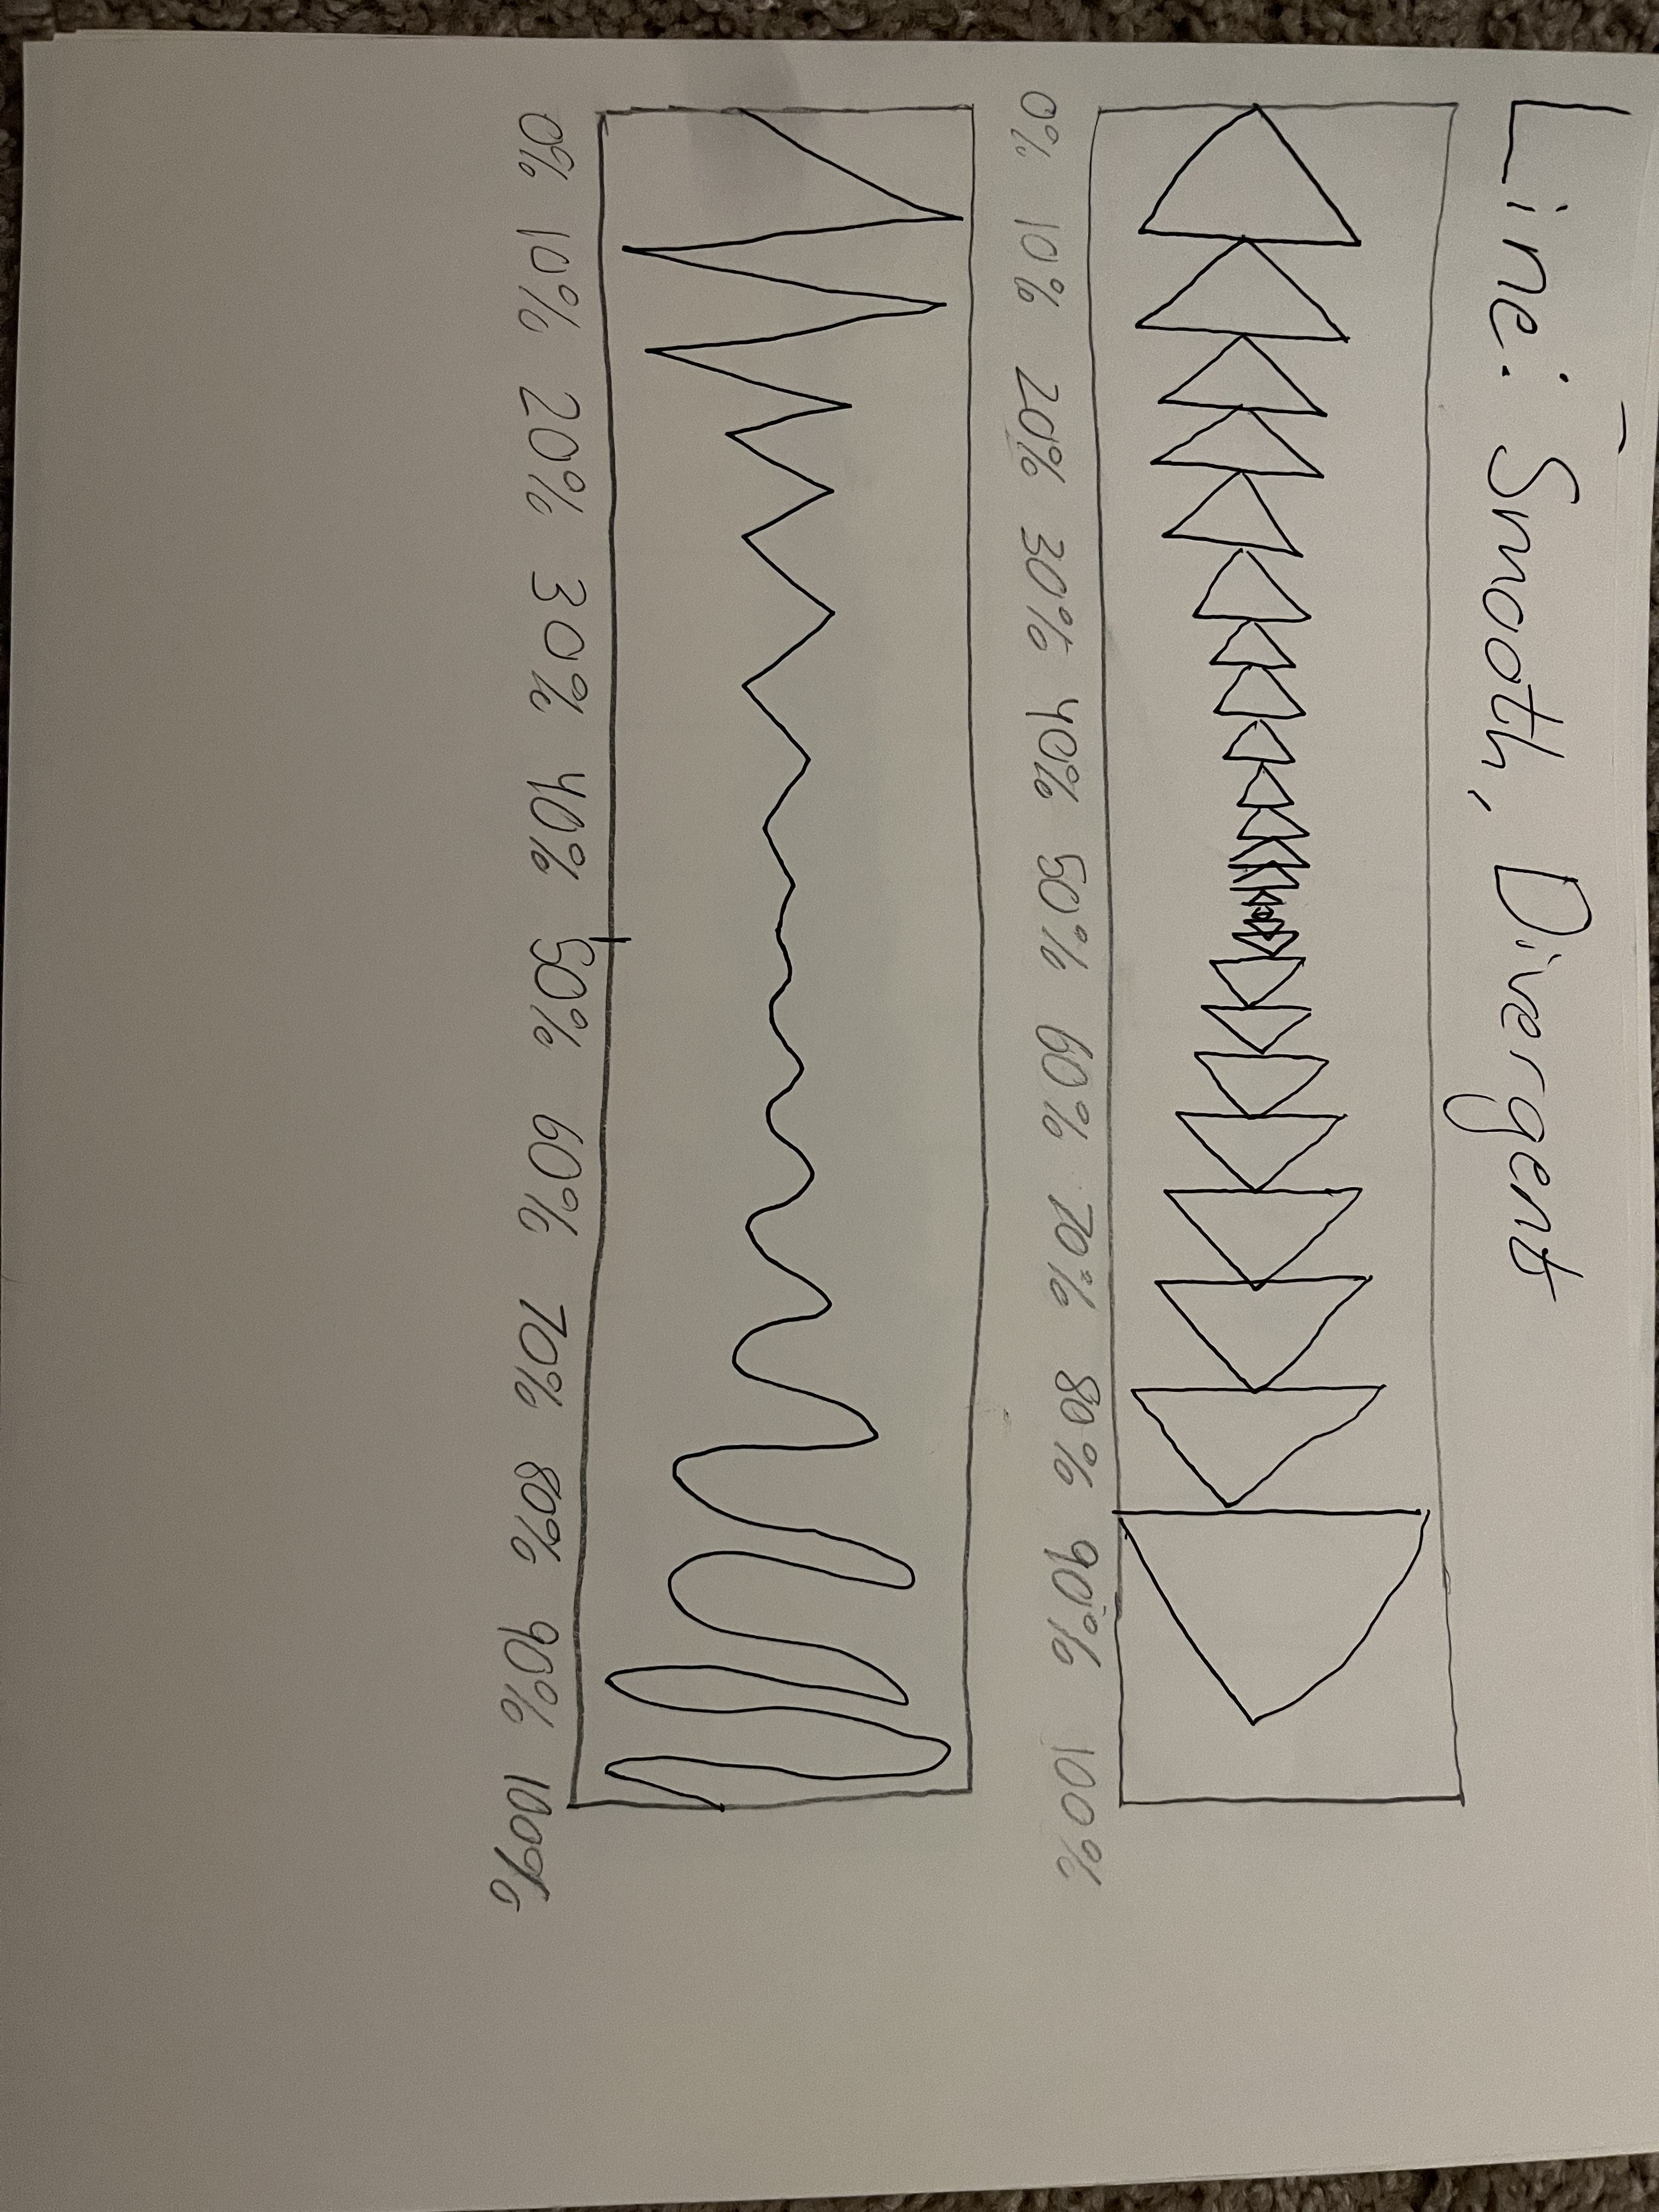 Line: Smooth, Divergent
0% 10% 20% 30% 40% 50% 60% 70% 80% 90% 100%
0% 10% 20% 30% 40% 50% 60% 70% 80% 90% 100%